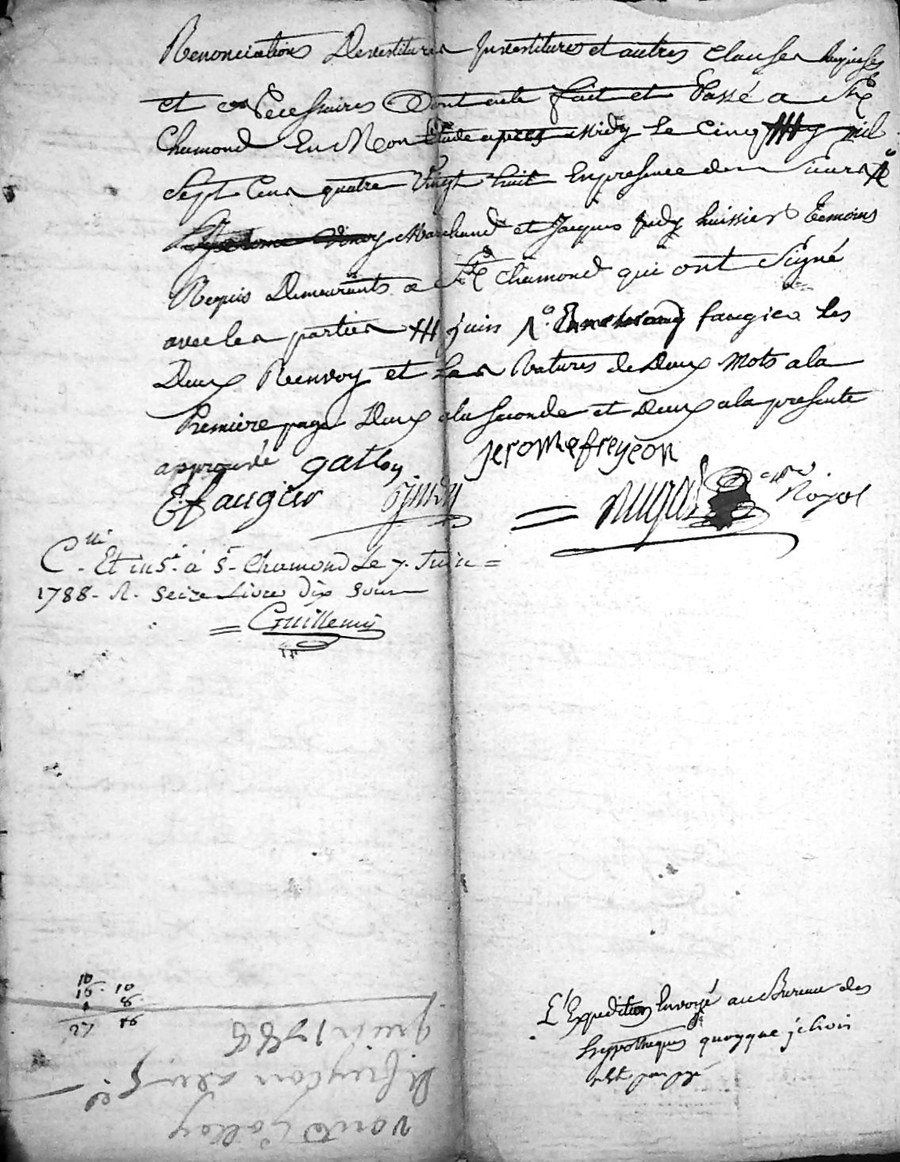 Renonciations Devestitures Investitures et autres clauses requises
et Necessaires Dont acte fait et Passé a St
Chamond En Mon Etude apres Midy Le cinq mil
Sept Cens quatre Vingt huit En presence de Sieurs
Marchand et Jacques Judy huissier temoins
Requis Demeurants a St Chamond qui ont Signé
avec les parties juin faugier Les
Deux Renvoy et Les Ratures de Deux Mots a la
Premiere page Deux a la Seconde et Deux a la presente
approuvé galloy jerome freyçon
faugier Judy Royal
Clle Et insé. à St. Chamond Le 7. Juin
1788. R. Seize Livre Dix Sous
Guillemin
10
16. 10
8.
27 16
L'Expedition Envoyé au Bureau des
hypotheques quoyque je
pas payé
vente Galloy
freyçon
juin 1788